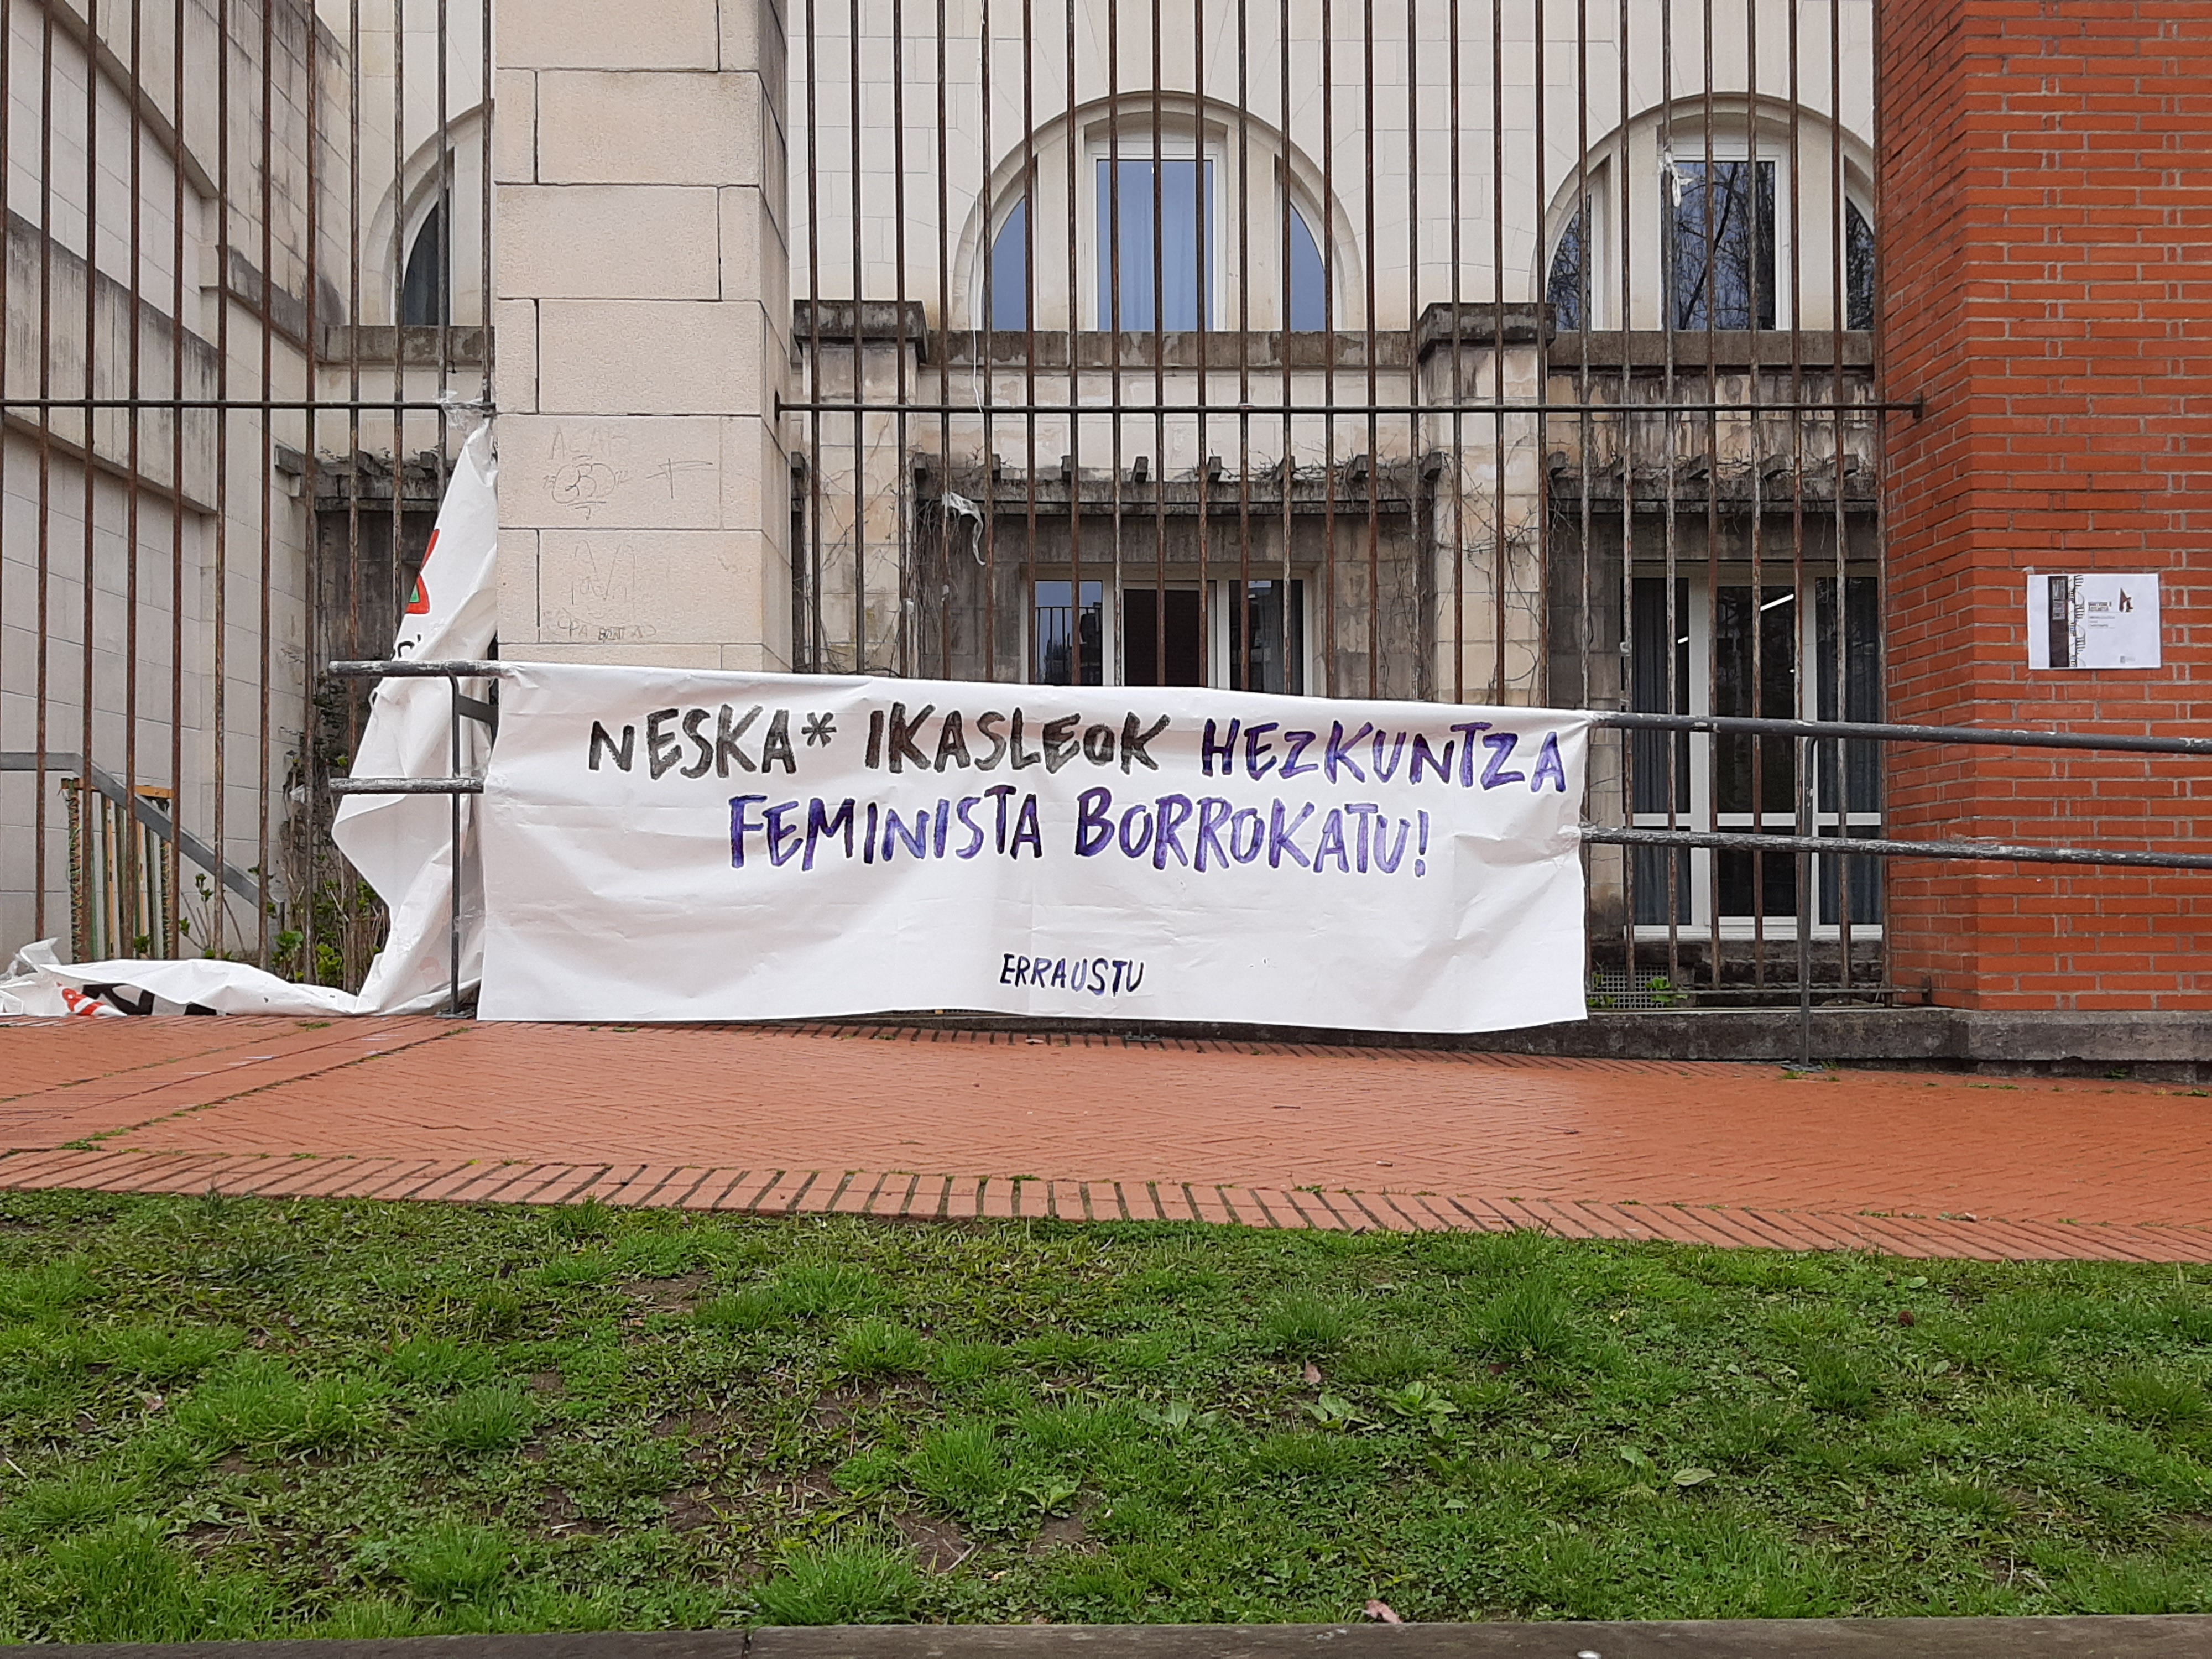 NESKA* IKASLEOK HEZKUNTZA
FEMINISTA BORROKATU!
ERRAUSTU